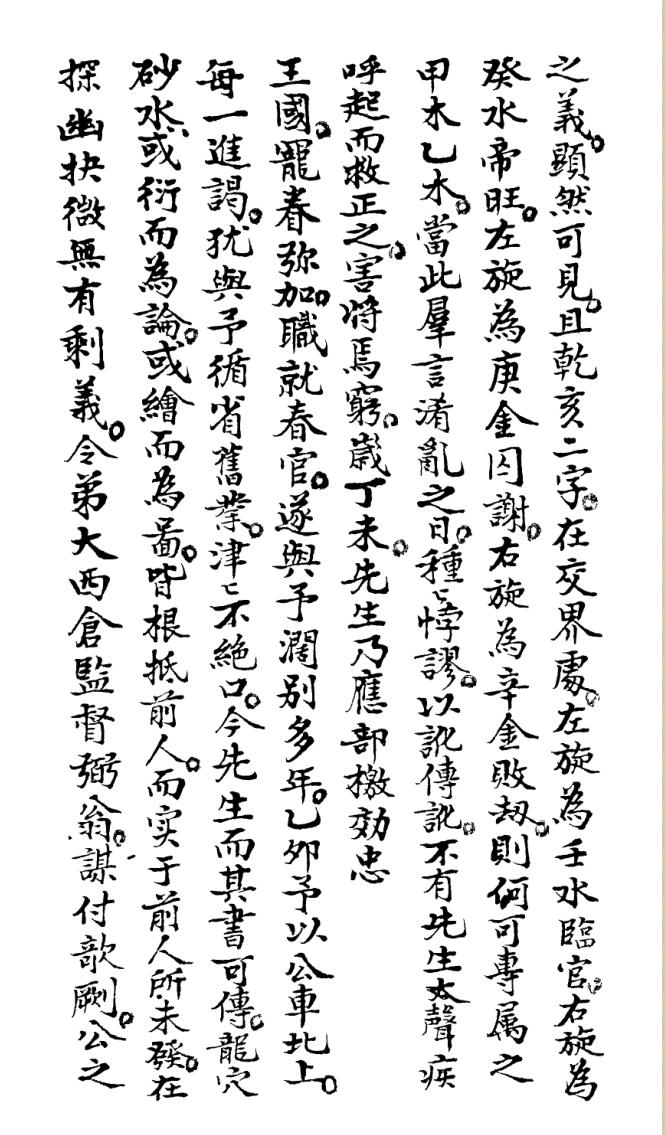 之義。顯然可見。且乾亥二字。在交界處。左旋為壬水臨官。右旋為
癸水帝旺。左旋為庚金囚謝。右旋為辛金敗刼。則何可專属之
甲木乙木。當此羣言淆亂之日。種〻悖謬。以訛傳訛。不有先生大聲疾
呼起而救正之。害將焉窮。歲丁未。先生乃應部檄効忠
王國。寵眷弥加。職就春官。遂與予濶别多年。乙夘予以公車北上。
每一進謁。犹與予循省舊業。津〻不絶口。今先生而其書可傳。龍穴
砂水。或衍而為論。或繪而為啚。皆根抵前人。而实于前人所未發。在
探幽抉微無有剩義。令弟大西倉監督弼翁。謀付歆劂。公之